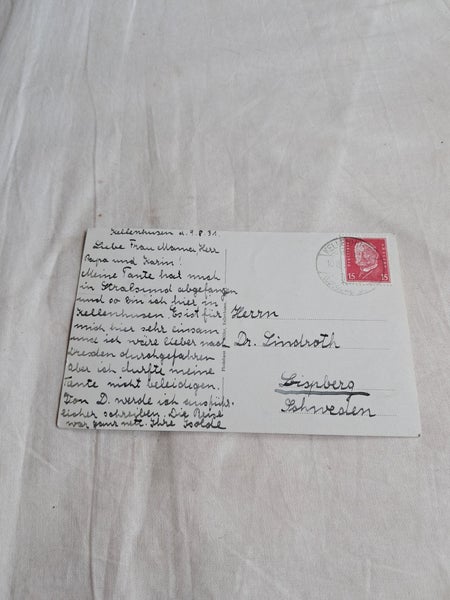 Kellenhusen d. 9.8.31.
Liebe Frau Mama, Herr
Papa und Karin!
Meine Tante hat mich
in Stralsund abgefangen
und so bin ich hier in
Kellenhusen. Es ist für
mich hier sehr einsam
und ich wäre lieber nach
Dresden durchgefahren
aber ich durfte meine
Tante nicht beleidigen.
Von D. werde ich ausführ-
licher schreiben. Die Reise
war ganz nett. Ihre Isolde
Herrn
Dr. Lindroth
Lispberg
Schweden
15 15